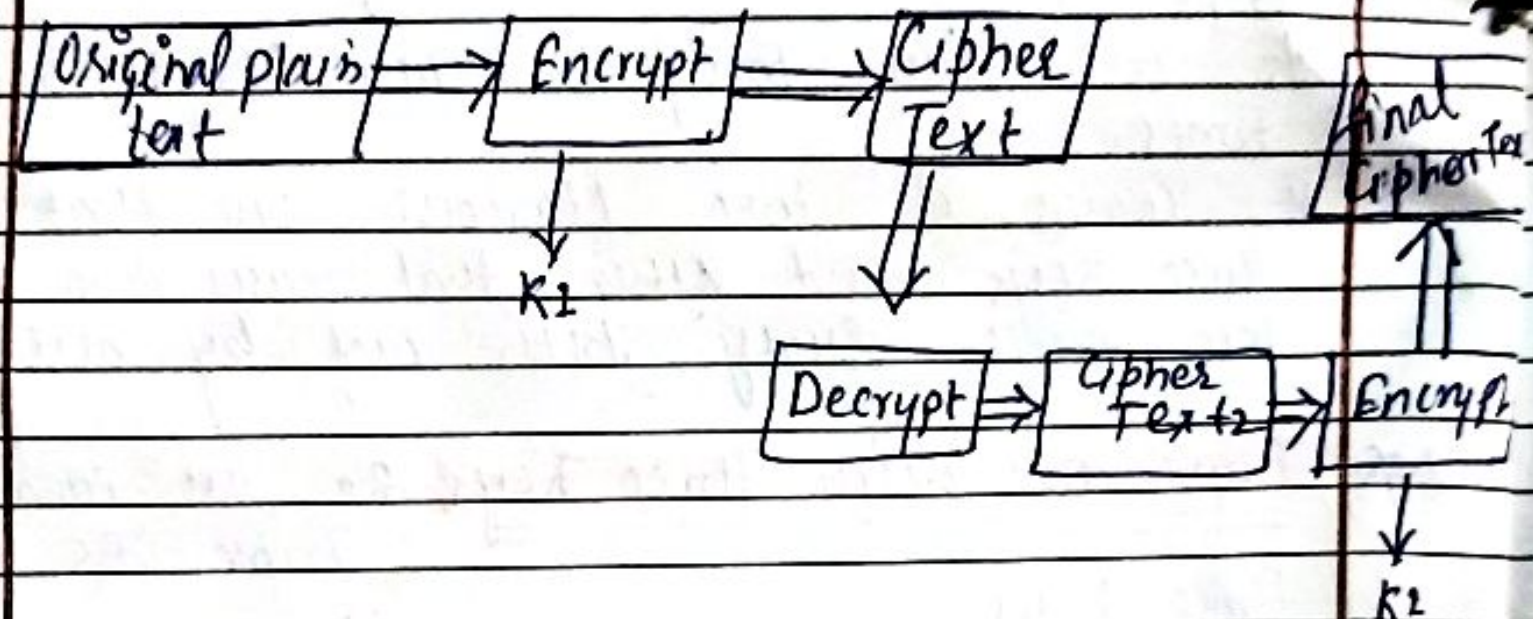 Original plain
text
Encrypt
Cipher
Text
K1
final
Cipher Tex
Decrypt
Cipher
Text2
Encryp
K1